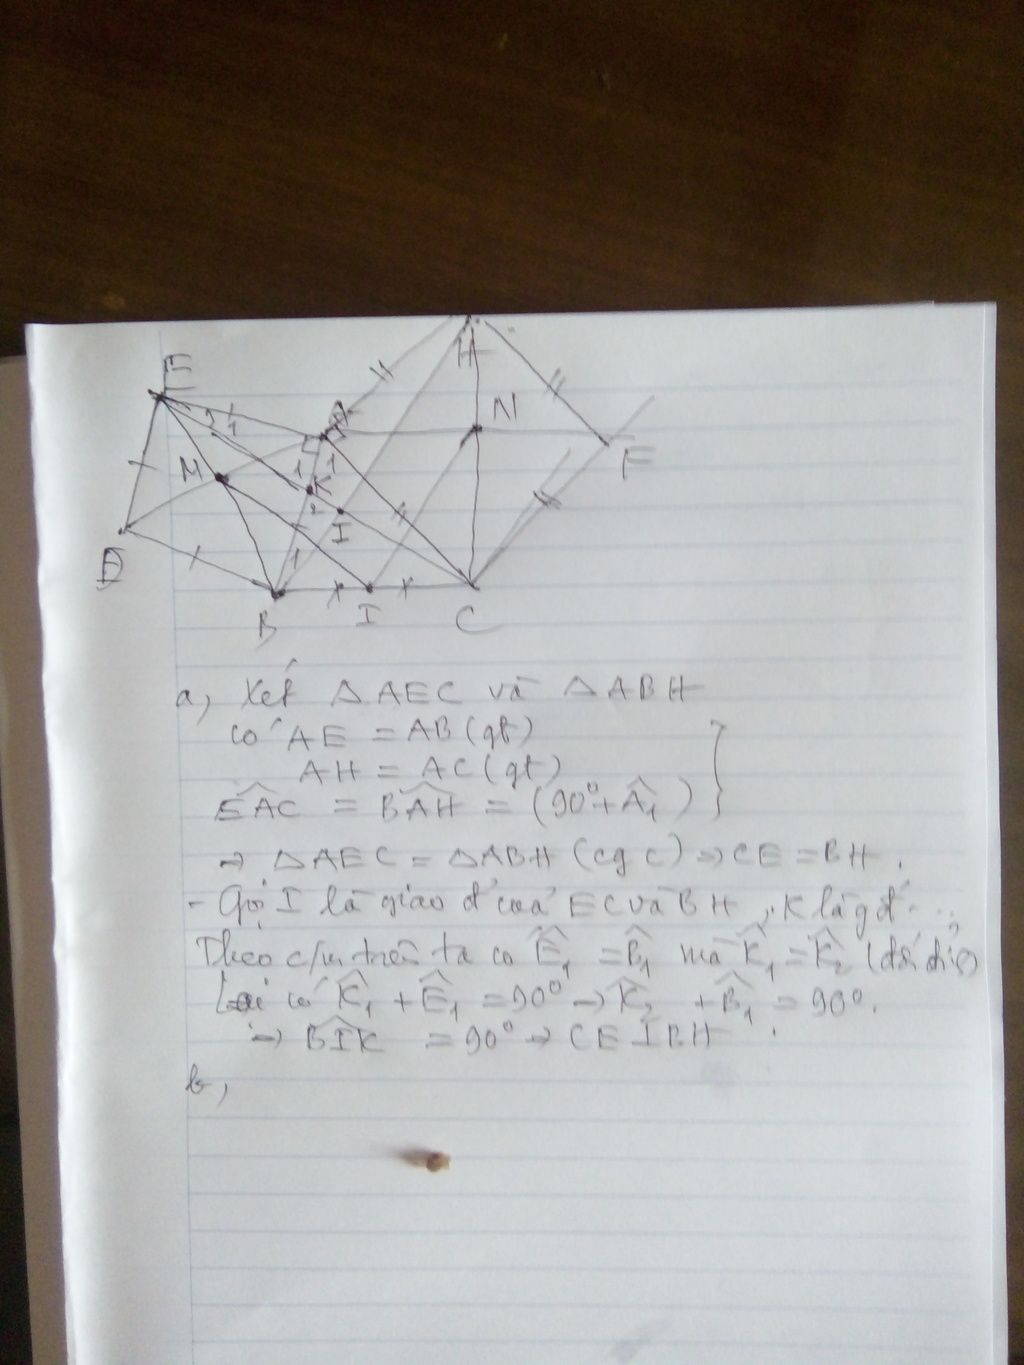 E
H
A
N
2 1
1
1
M
K
F
2
I
1
D
B
I
C
a, Xét △AEC và △ABH
có AE = AB (gt)
AH = AC (gt)
EAC = BAH = (90° + Â1)
→ △AEC = △ABH (cgc) → CE = BH.
- Gọi I là giao đ của EC và BH, K là gđ...
Theo c/m trên ta có Ê1 = B̂1 mà K̂1 = K̂2 (đối đỉnh)
Lại có K̂1 + Ê1 = 90° → K̂2 + B̂1 = 90°.
→ BIK = 90° → CE ⊥ BH.
b,